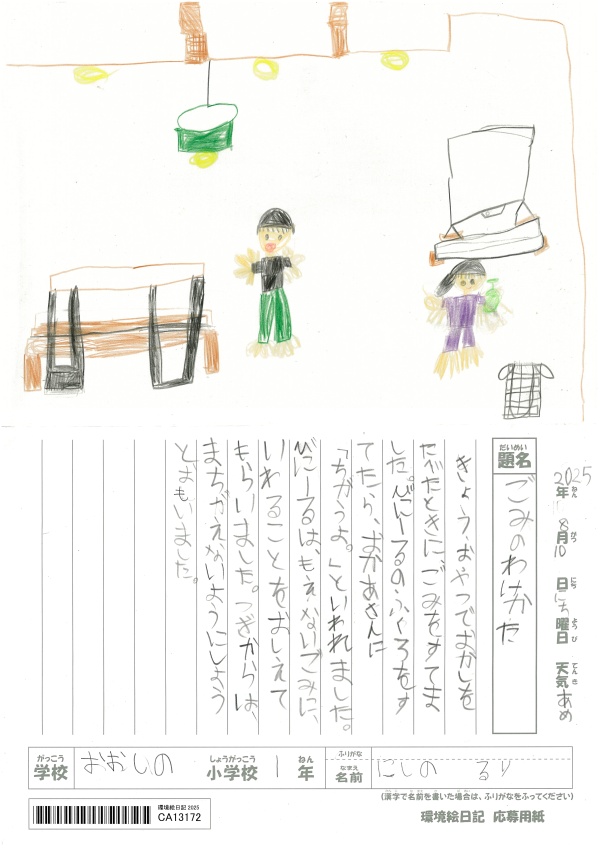 2025年 8月10日 にち曜日 天気 あめ
ねん がつ にち ようび てんき
だいめい
題名
ごみのわけかた
きょう、おやつでおかしを
たべたときにごみをすてま
した。びにーるのふくろをす
てたら、おかあさんに
「ちがうよ。」といわれました。
びにーるは、もえないごみに、
いれることをおしえて
もらいました。つぎからは、
まちがえないようにしよう
とおもいました。
がっこう
学校
おおしの
しょうがっこう
小学校
1
ねん
年
ふりがな
なまえ
名前
にしの るり
(漢字で名前を書いた場合は、ふりがなをふってください)
環境絵日記 2025
CA13172
環境絵日記 応募用紙